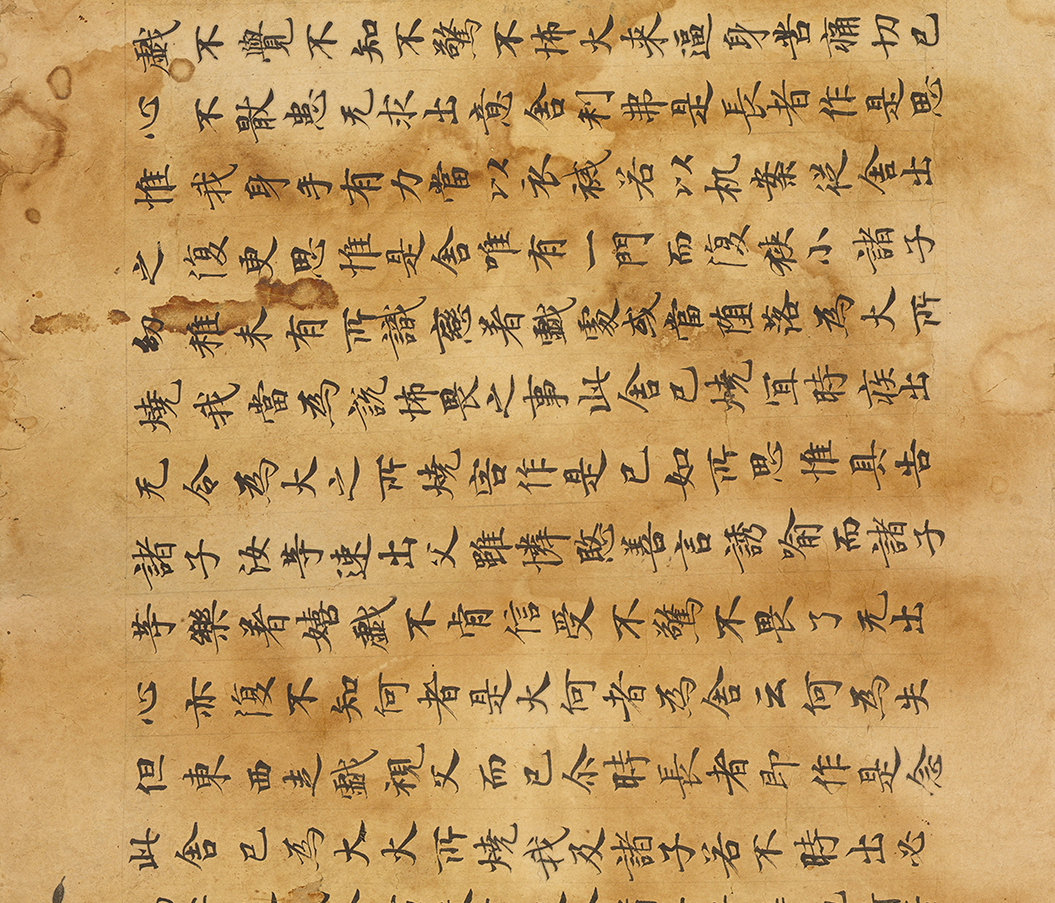 戲不覺不知不驚不怖火来逼身苦痛切己
心不猒患无求出意舍利弗是長者作是思
惟我身手有力當以衣裓若以机案從舍出
之復更思惟是舍唯有一門而復狹小諸子
幼稚未有所識戀着戲處或當堕落為火所
燒我當為說怖畏之事此舍已燒宜時疾出
无令為火之所燒害作是已如所思惟具告
諸子汝等速出父雖憐愍善言誘喻而諸子
等樂着嬉戲不肯信受不驚不畏了无出
心亦復不知何者是火何者為舍云何為失
但東西走戲視父而已尒時長者即作是念
此舍已為大火所燒我及諸子若不時出必